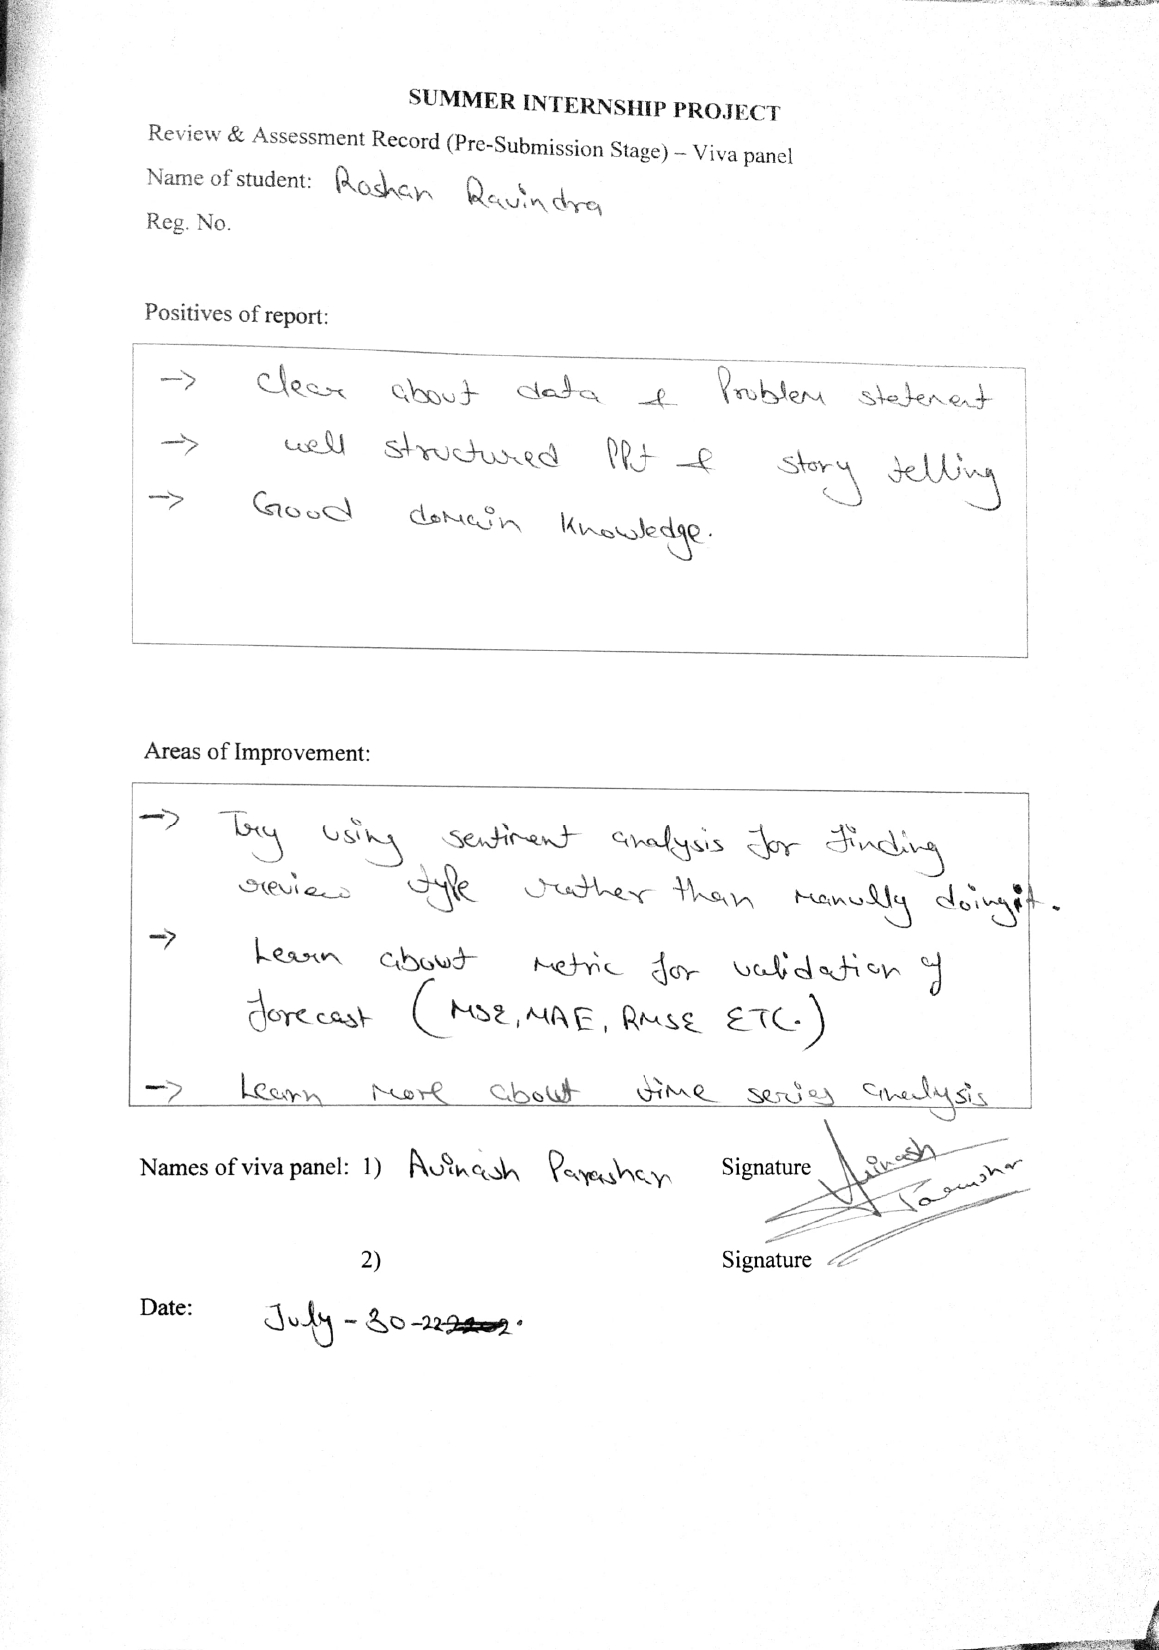 SUMMER INTERNSHIP PROJECT
Review & Assessment Record (Pre-Submission Stage) – Viva panel
Name of student: Roshan Ravindra
Reg. No.
Positives of report:
→ Clear about data & Problem statement
→ well structured PPt & story telling
→ Good domain knowledge.
Areas of Improvement:
→ Try using sentiment analysis for finding
review type rather than manully doing it.
→ Learn about metric for validation of
forecast (MSE, MAE, RMSE ETC.)
→ Learn more about time series analysis
Names of viva panel: 1) Avinash Parashar Signature Avinash
Parashar
2) Signature
Date: July - 30 - 22